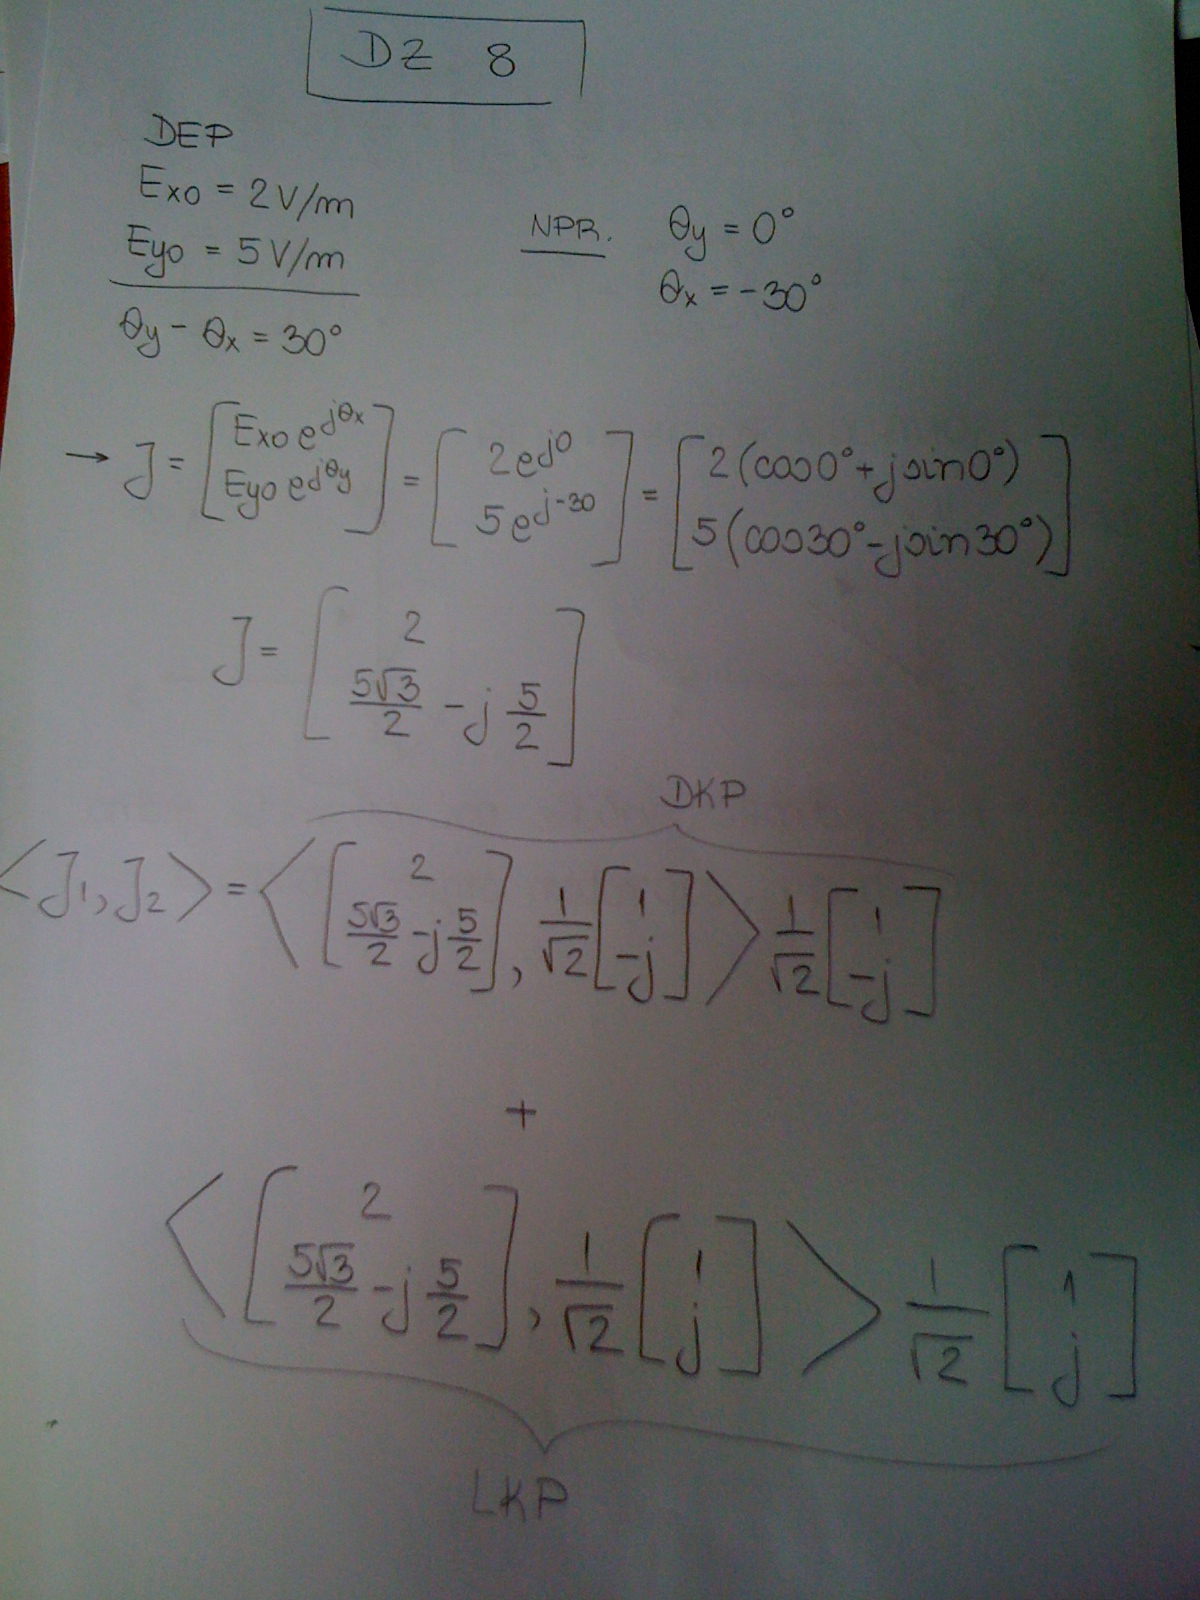 DZ 8
DEP
Exo = 2V/m
Eyo = 5V/m
θy - θx = 30°
NPR. θy = 0°
θx = -30°
→ J = [Exo e^jθx; Eyo e^jθy] = [2e^j0; 5e^j-30] = [2(cos0°+jsin0°); 5(cos30°-jsin30°)]
J = [2; 5√3/2 - j 5/2]
DKP
<J1, J2> = <[2; 5√3/2 - j 5/2], 1/√2 [1; -j]> 1/√2 [1; -j]
+
<[2; 5√3/2 - j 5/2], 1/√2 [1; j]> 1/√2 [1; j]
LKP